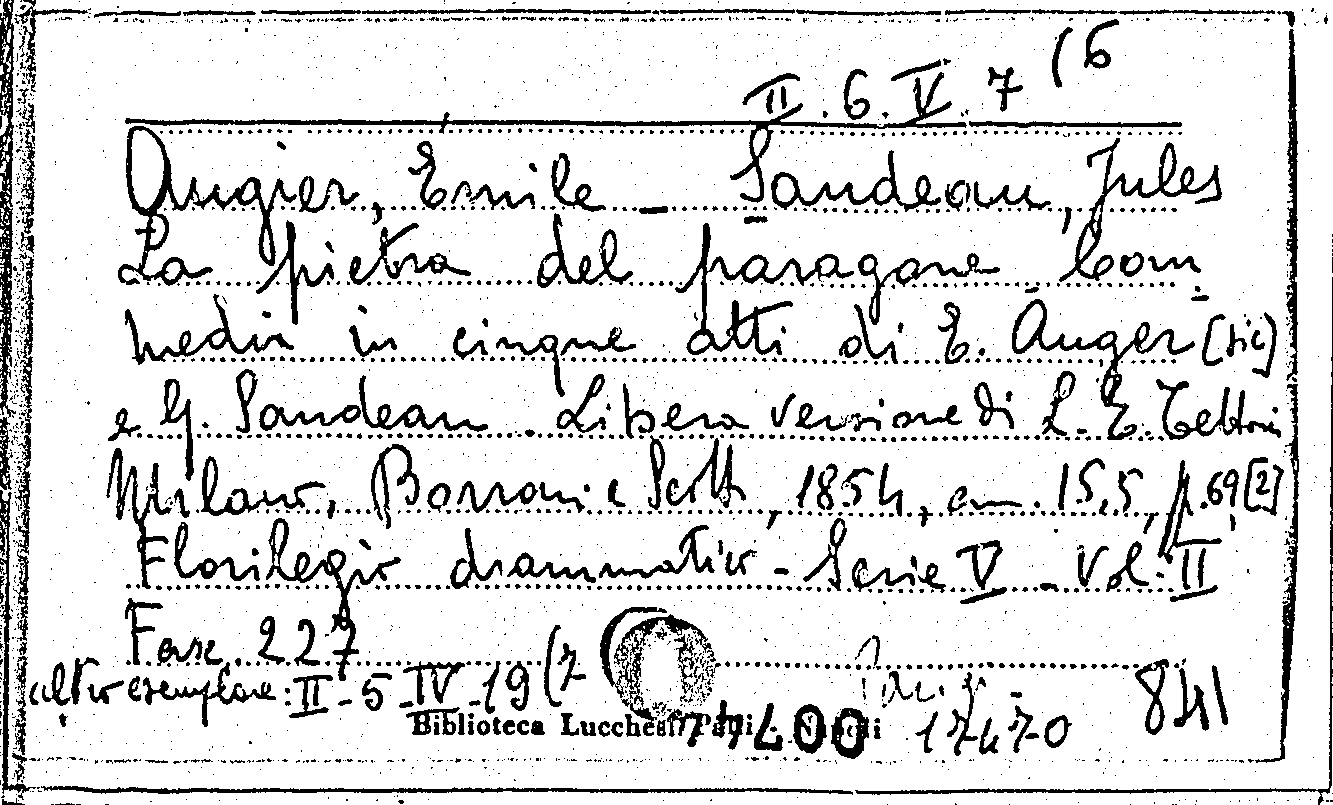 II. 6. V. 7 (6
Augier, Emile - Sandeau, Jules
La pietra del paragone Com
media in cinque atti di E. Auger (sic)
e G. Sandeau. Libera versione di L. E. Tettoni
Milano, Borroni e Scotti, 1854, cm. 15,5, p. 69 [2]
Florilegio drammatico - Serie V - Vol. II
Fasc. 227
altro esemplare: II - 5 - IV - 19 (7
841
Biblioteca Lucchesi Palli Napoli
17470